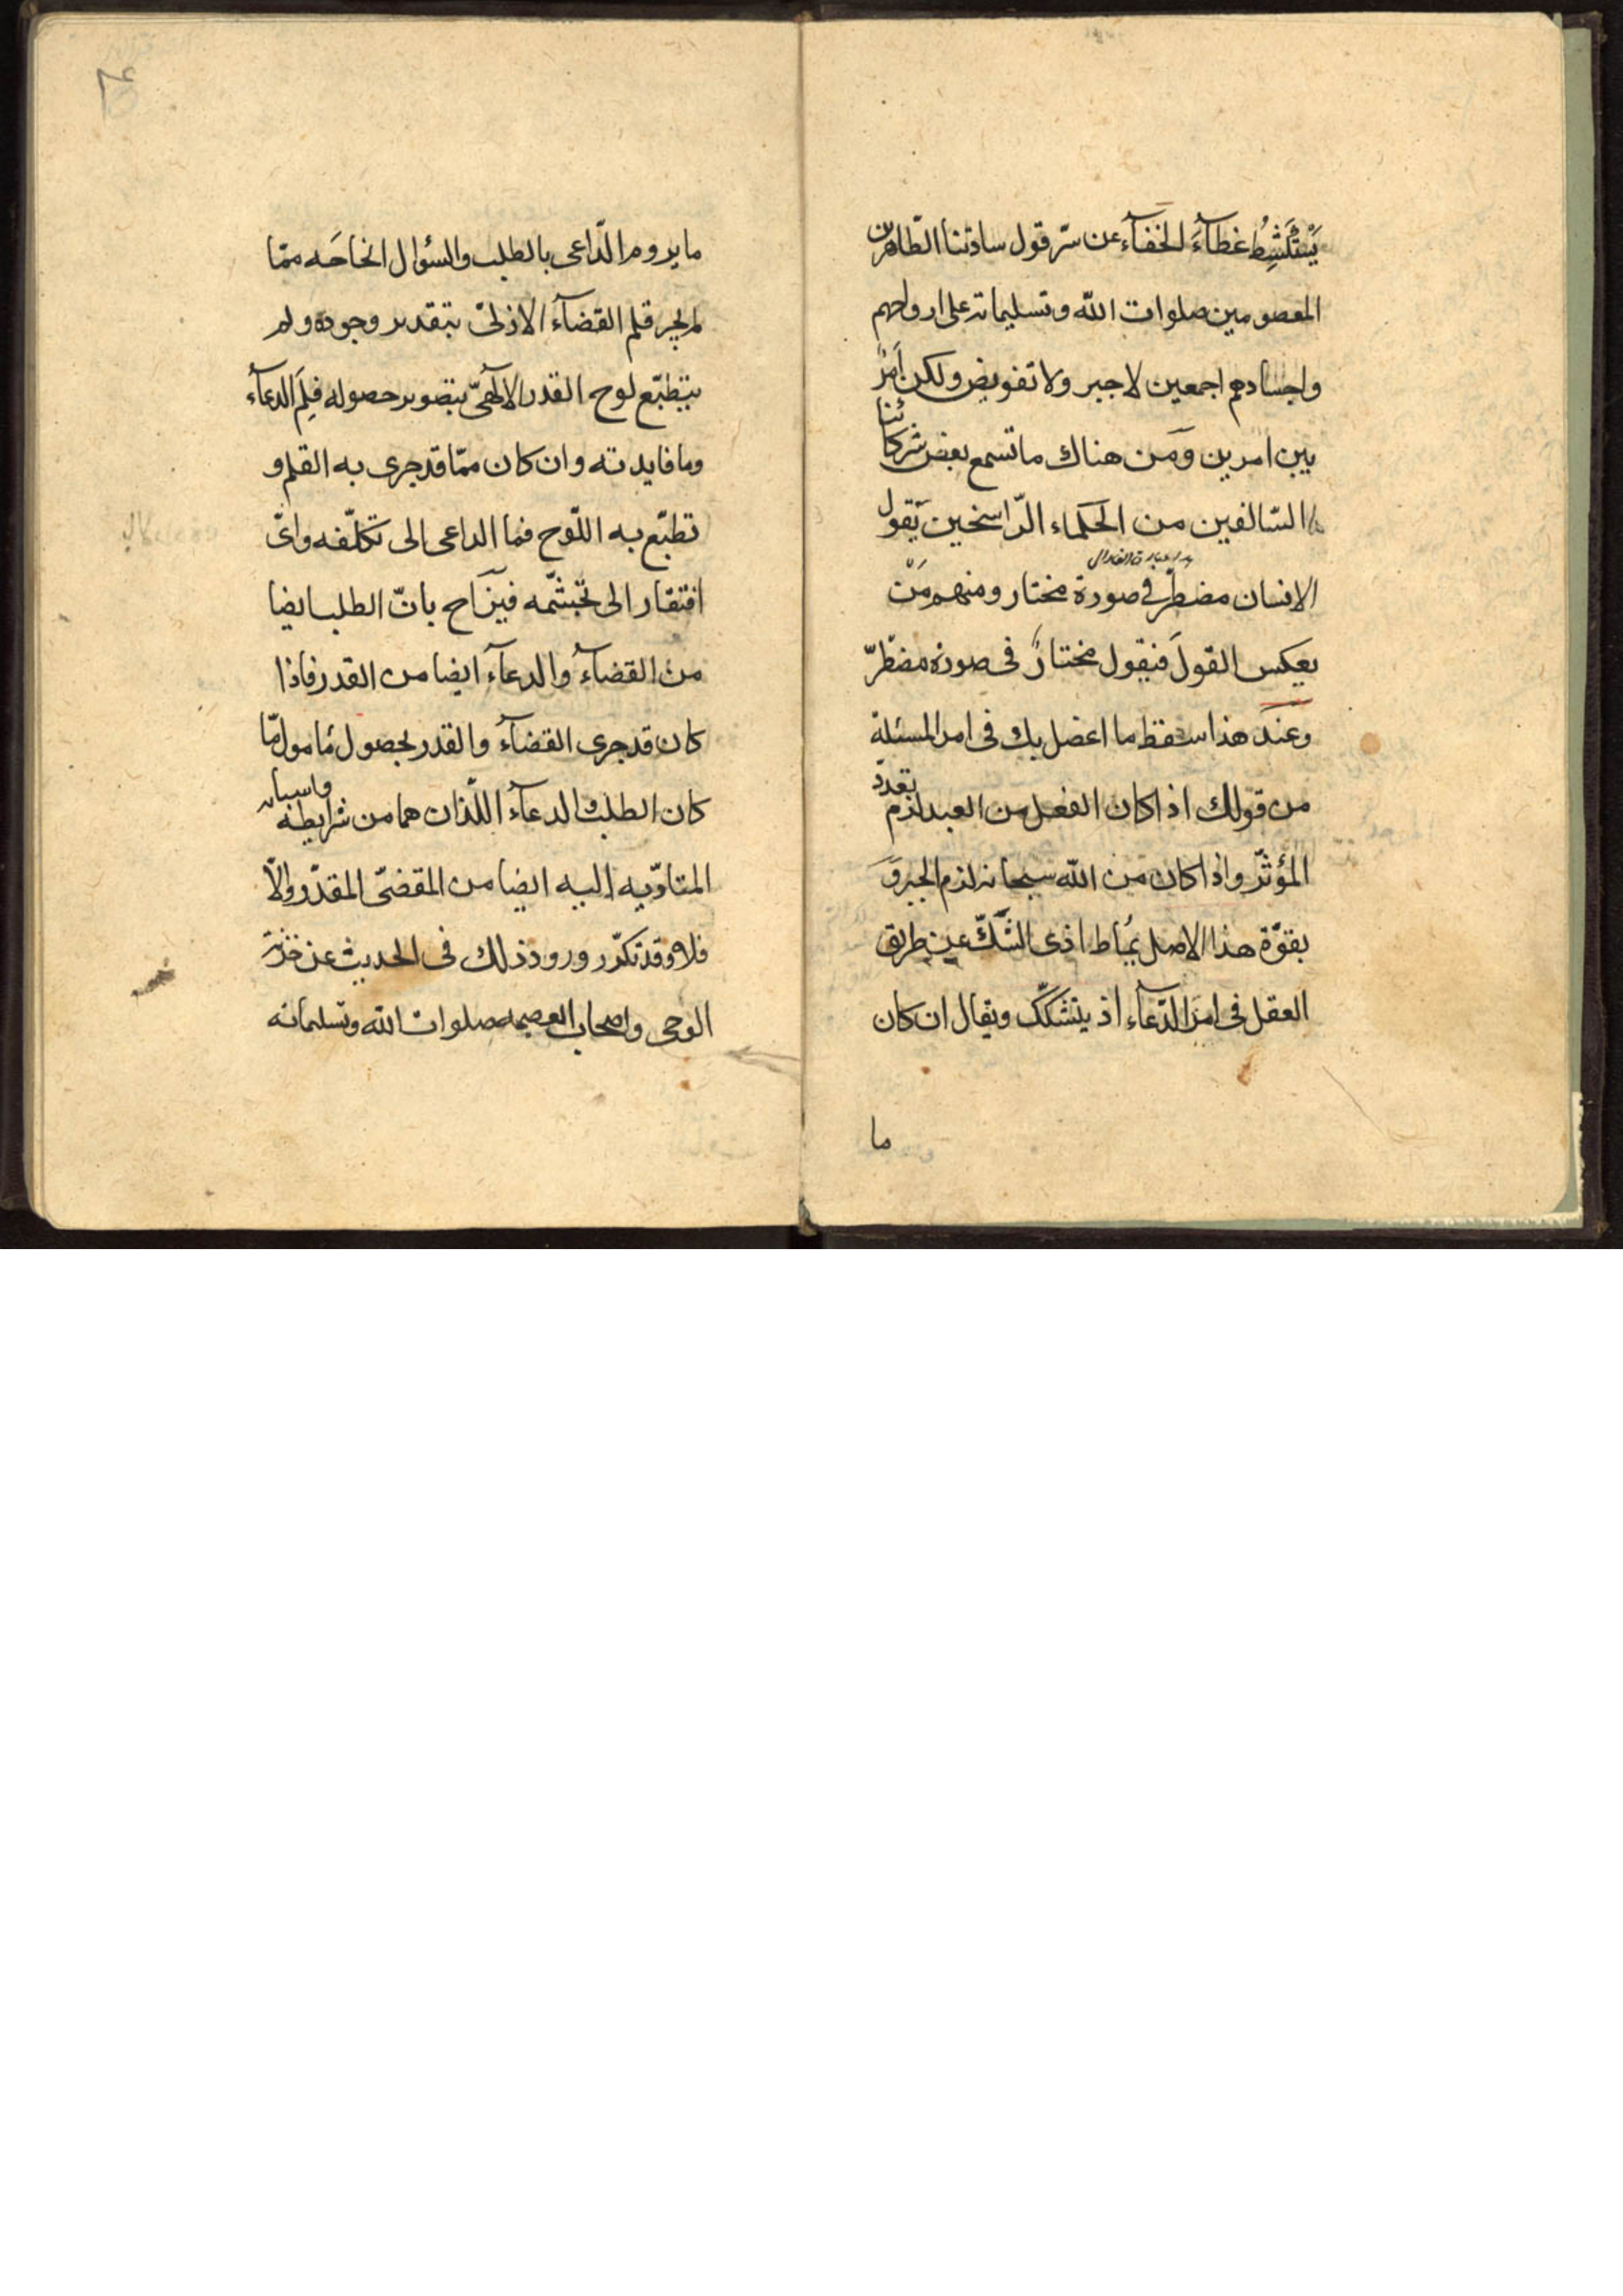 يَنْكَشِطُ غطآءَ الخفآء عن سرّ قول سادتنا الطّاهرين
المعصومين صلوات الله وتسليماته على ارواحهم
واجسادهم اجمعين لا جبر ولا تفويض ولكن أَمْرٌ
بين امرين ومن هناك ما تسمع بعض شركائنا
السّالفين من الحكماء الرّاسخين يَقول
الانسان مضطرّ فى صورة مختار ومنهم مَنْ
يعكس القولَ فيقول مختارٌ فى صورة مضطرّ
وعند هذا سقط ما اعضل بك فى امر المسئلة
من قولك اذا كان الفعل من العبد لزم تعدّد
المؤثّر واذا كان من الله سبحانه لزم الجبر وَ
بقوّة هذا الاصل يُماط اذى الشَّكّ عن طريق
العقل فى امر الدّعآء اذ يتشكّك ويقال ان كان
ما
ما يروم الدّاعى بالطلب والسّؤال انجاحَه ممّا
لم يجر قلم القضآء الازلىّ بتقدير وجوده ولم
يتطبّع لوح القدر الالهىّ بتصوير حصوله فلِمَ الدعآء
وما فايدته وان كان ممّا قد جرى به القلم و
تطبّع به اللّوح فما الداعى الى تكلّفه واىّ
افتقار الى تجشّمه فيزاح بانّ الطلب ايضا
من القضآء والدعآء ايضا من القدر فاذا
كان قد جرى القضآء والقدر بحصول مأمول مّا
كان الطلب والدعآء اللّذان هما من شرايطه واسبابه
المتادّيه اليه ايضا من المقضىّ المقدّر والّا
فلا وقد تكرّر ورود ذلك فى الحديث عن خزنة
الوحى واصحاب العصمه صلوات الله وتسليماته